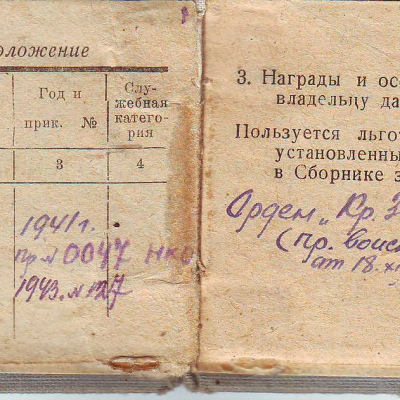 оложение
Год и
прик. №
Слу-
жебная
катего-
рия
3
4
1941 г.
пр. № 0047 НКО
1943. № 127
3. Награды и осо
владельцу да
Пользуется льгот
установленны
в Сборнике з
Орден „Кр. З
(пр. войск
от 18. XI